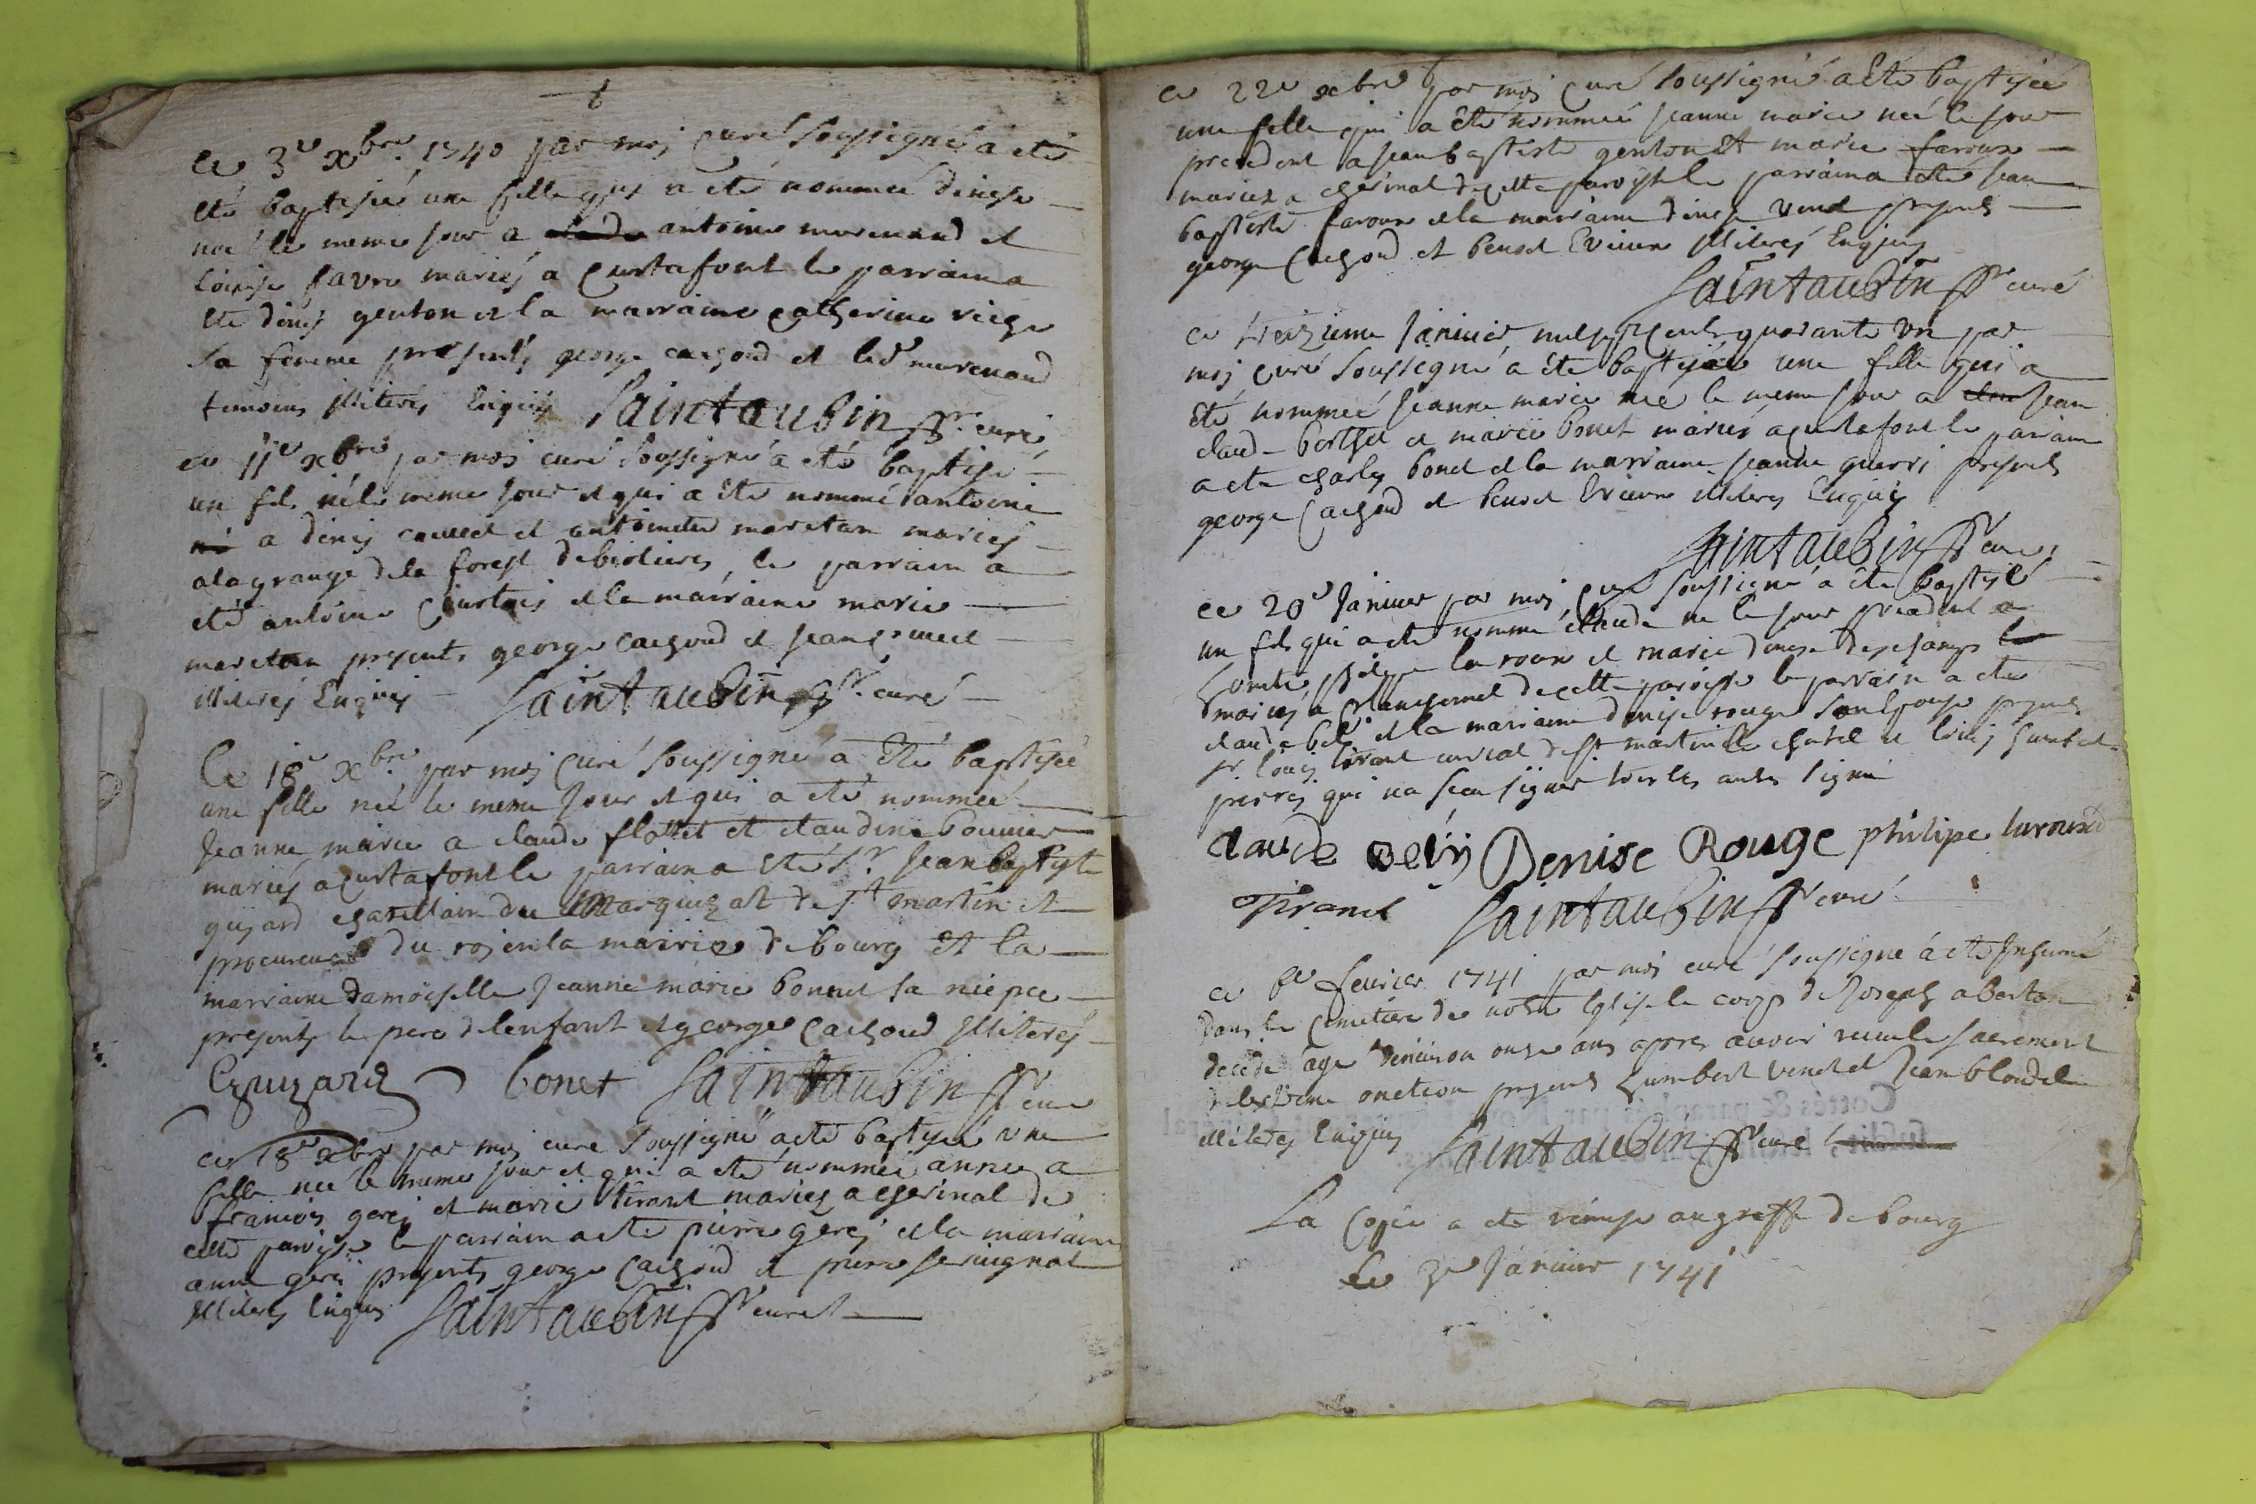 ce 3e xbre 1740 par moi curé soussigné a eté
eté baptisée une fille qui a eté nommée denise
née le meme jour a antoine morenand et
loüise favre mariés a curtafont le parrain a
ete denis genton et la marraine catherine
sa femme presents george cachoud et led morenand
temoins illiterés enquis Saintaubin curé
ce 11e xbre par moi curé soussigné a eté baptisé
un fils né le meme jour et qui a eté nommé antoine
a denis et antoinette maretan mariés
a la grange de la forest de biolieres, le parrain a
eté antoine courtois et la marraine marie
maretan presents george cachoud et jean
illiterés enquis Saintaubin curé
Ce 18e xbre par moi curé soussigné a eté baptisée
une fille née le meme jour et qui a eté nommée
jeanne marie a claude flottet et claudine bouvier
mariés a curtafont le parrain a eté sr. jean baptiste
gujard chatellain du marquizat de st martin et
procureur du roi en la mairie de bourg et la
marraine damoiselle jeanne marie bonnet sa niepce
presents le pere de lenfant et george cachoud illiterés
bonet Saintaubin curé
ce 18e xbre par moi curé soussigné a eté baptisée une
fille née le meme jour et qui a eté nommée anne a
francois gerej et marie tirant mariez a cherinal de
cette paroisse le parrain a ete pierre gerej et la marraine
anne gerej presents george cachoud et pierre
illiterés enquis Saintaubin curé
ce 22e xbre par moi curé soussigné a été baptisée
une fille qui a été nommée jeanne marie née le jour
precedent a jean baptiste genton et marie faroux
mariez a cherinal de cette paroisse le parrain a été jean
baptiste faroux et la marraine denise venet presents
george cachoud et benoit illiterés enquis
Saintaubin curé
ce treizieme janvier mil sept cents quarante un par
moi curé soussigné a été baptisée une fille qui a
eté nommée jeanne marie née le meme jour a jean
claude berthet et marie bonet mariés a curtafont le parrain
a ete charles bonet et la marraine jeanne guerri presents
george cachoud et benoit illiterés enquis
Saintaubin curé
ce 20e janvier par moi curé soussigné a ete baptisé
un fils qui a ete nommé claude ne le jour precedent a
philippe et marie denise deschamps
mariés a de cette paroisse le parrain a ete
claude et la marraine denise rouge son epouse presents
sr. louis tirant curial de st martin le chatel et
qui na sceu signer les autres signé
claude Denise Rouge philipe
Tirand Saintaubin curé
ce fevrier 1741 par moi curé soussigné a eté inhumé
dans le cimetiere de notre eglise le corps de joseph
décédé agé denviron onze ans apres avoir receu le sacrement
de lextreme onction presents humbert venet et jean blondel
illiterés enquis Saintaubin curé
La copie a ete remise au greffe de bourg
le 3e janvier 1741